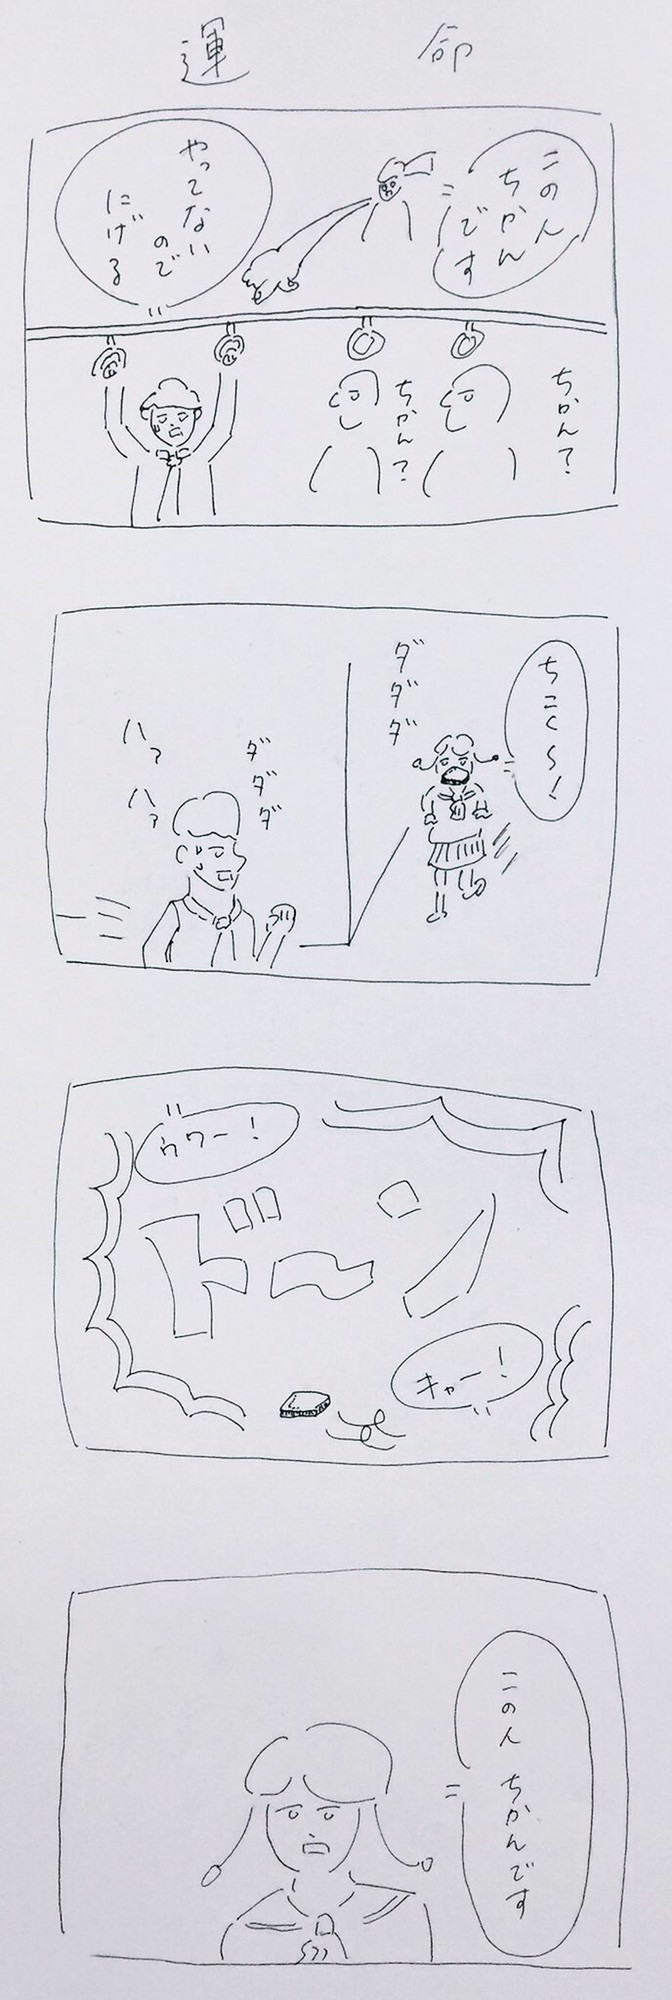 運命
このん
ちかん
です
やってない
ので
にげる
ちかん？
ちかん？
ちこく〜！
ダダダ
ダダダ
ハァ
ハァ
ウワー！
ドーン
キャー！
この人 ちかんです